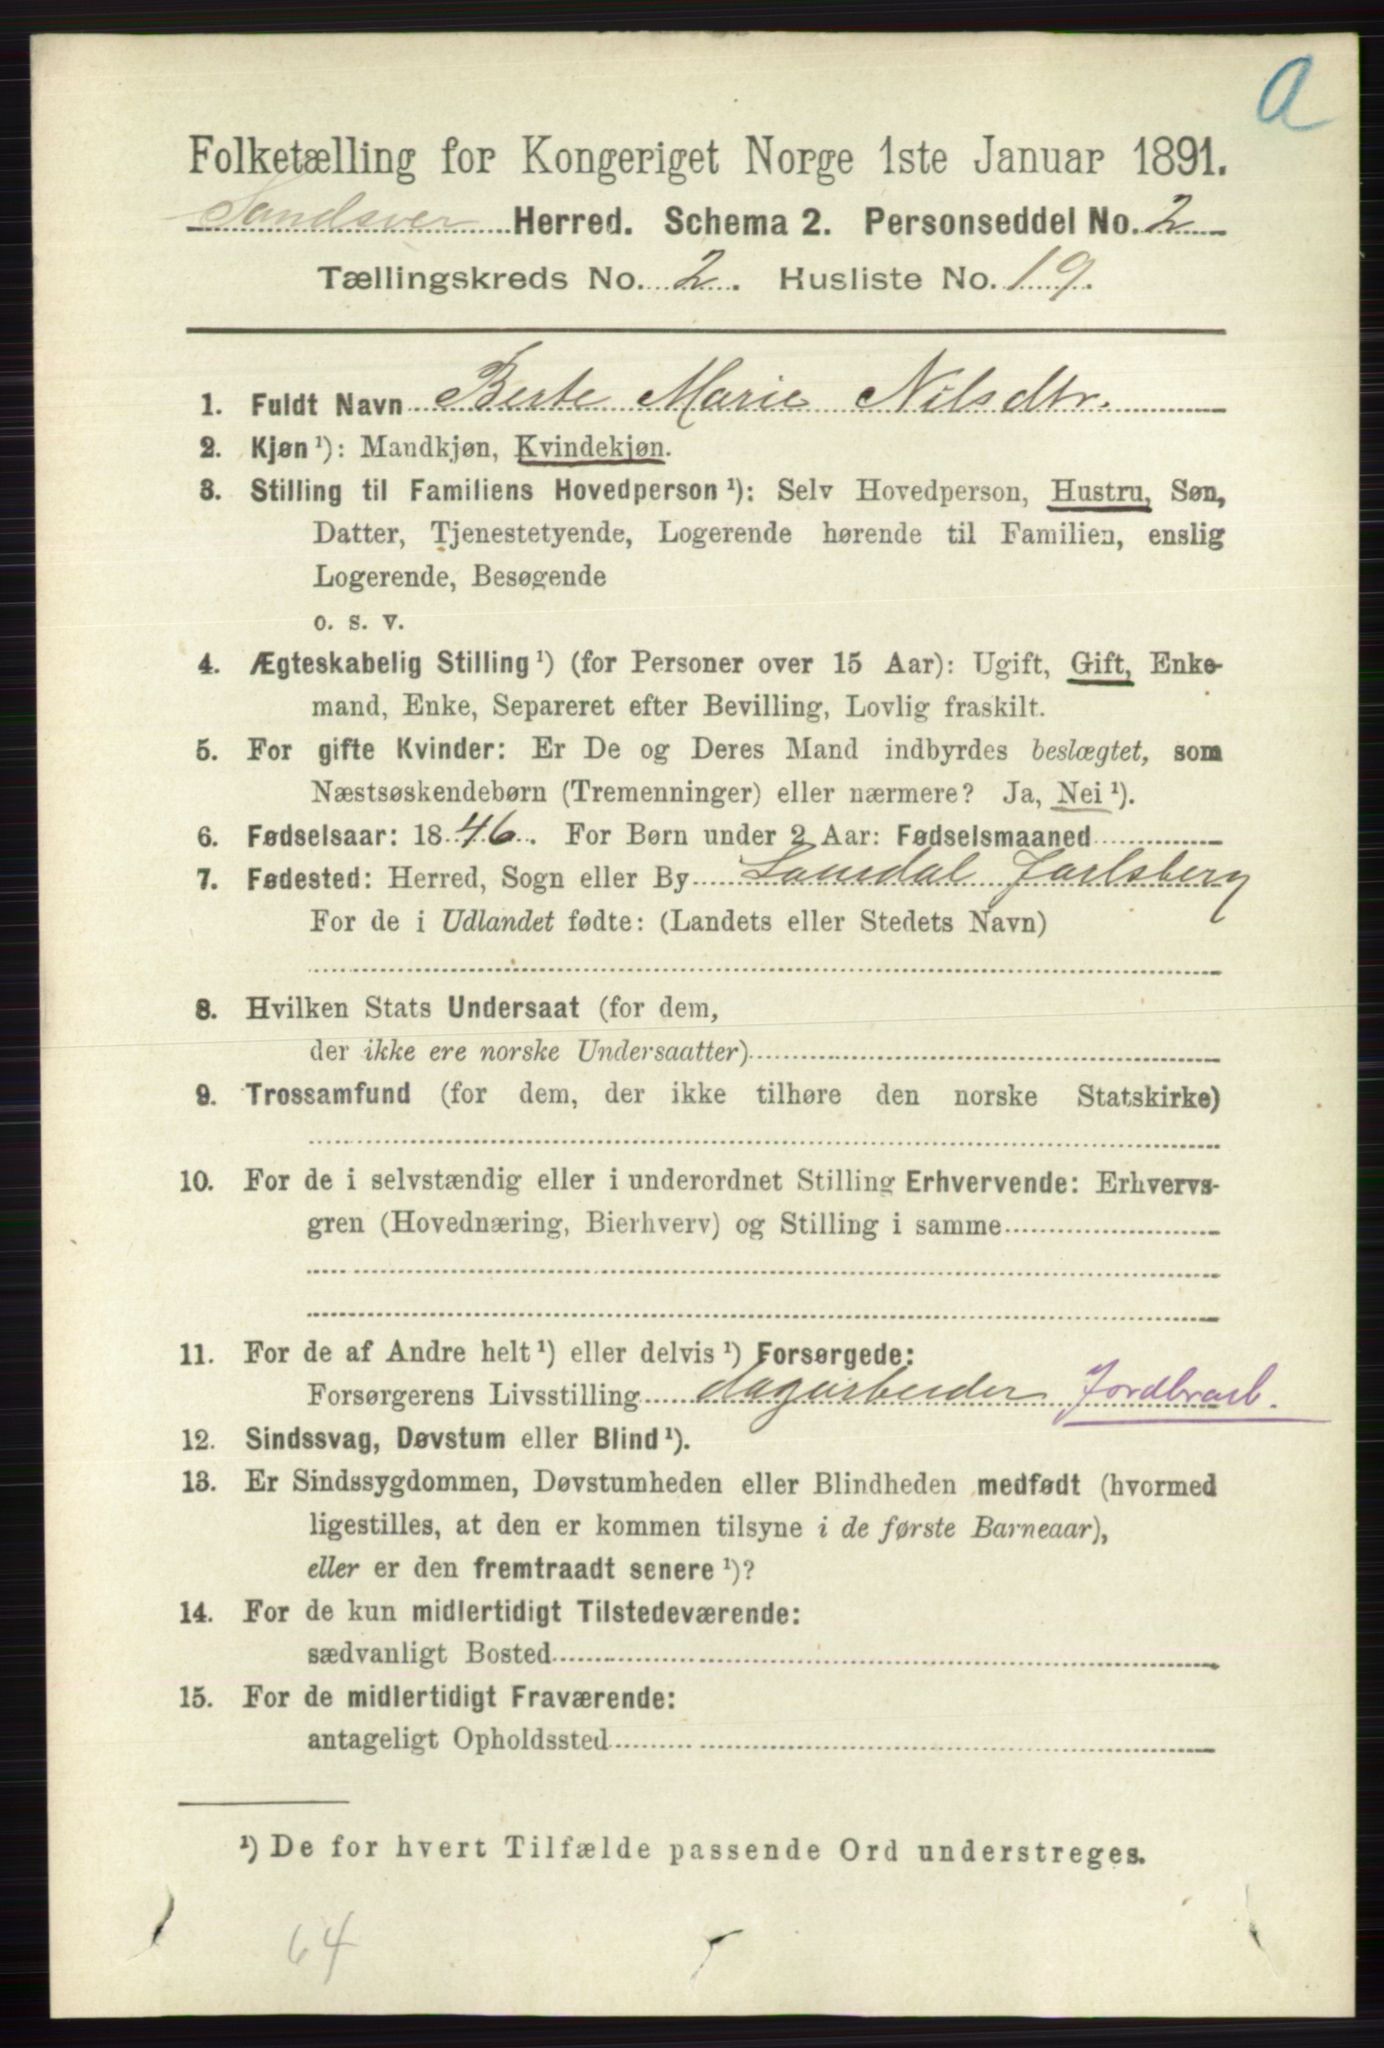 a
Folketælling for Kongeriget Norge 1ste Januar 1891.
Sandsver Herred. Schema 2. Personseddel No. 2
Tællingskreds No. 2. Husliste No. 19.
1. Fuldt Navn Berte Marie Nilsdtr.
2. Kjøn ¹): Mandkjøn, Kvindekjøn.
3. Stilling til Familiens Hovedperson ¹): Selv Hovedperson, Hustru, Søn,
Datter, Tjenestetyende, Logerende hørende til Familien, enslig
Logerende, Besøgende
o. s. v.
4. Ægteskabelig Stilling ¹) (for Personer over 15 Aar): Ugift, Gift, Enke-
mand, Enke, Separeret efter Bevilling, Lovlig fraskilt.
5. For gifte Kvinder: Er De og Deres Mand indbyrdes beslægtet, som
Næstsøskendebørn (Tremenninger) eller nærmere? Ja, Nei ¹).
6. Fødselsaar: 1846. For Børn under 2 Aar: Fødselsmaaned
7. Fødested: Herred, Sogn eller By Laurdal Jarlsberg
For de i Udlandet fødte: (Landets eller Stedets Navn)
8. Hvilken Stats Undersaat (for dem,
der ikke ere norske Undersaatter)
9. Trossamfund (for dem, der ikke tilhøre den norske Statskirke)
10. For de i selvstændig eller i underordnet Stilling Erhvervende: Erhvervs-
gren (Hovednæring, Bierhverv) og Stilling i samme
11. For de af Andre helt ¹) eller delvis ¹) Forsørgede:
Forsørgerens Livsstilling dagarbeider Jordbrarb.
12. Sindssvag, Døvstum eller Blind ¹).
13. Er Sindssygdommen, Døvstumheden eller Blindheden medfødt (hvormed
ligestilles, at den er kommen tilsyne i de første Barneaar),
eller er den fremtraadt senere ¹)?
14. For de kun midlertidigt Tilstedeværende:
sædvanligt Bosted
15. For de midlertidigt Fraværende:
antageligt Opholdssted
¹) De for hvert Tilfælde passende Ord understreges.
64